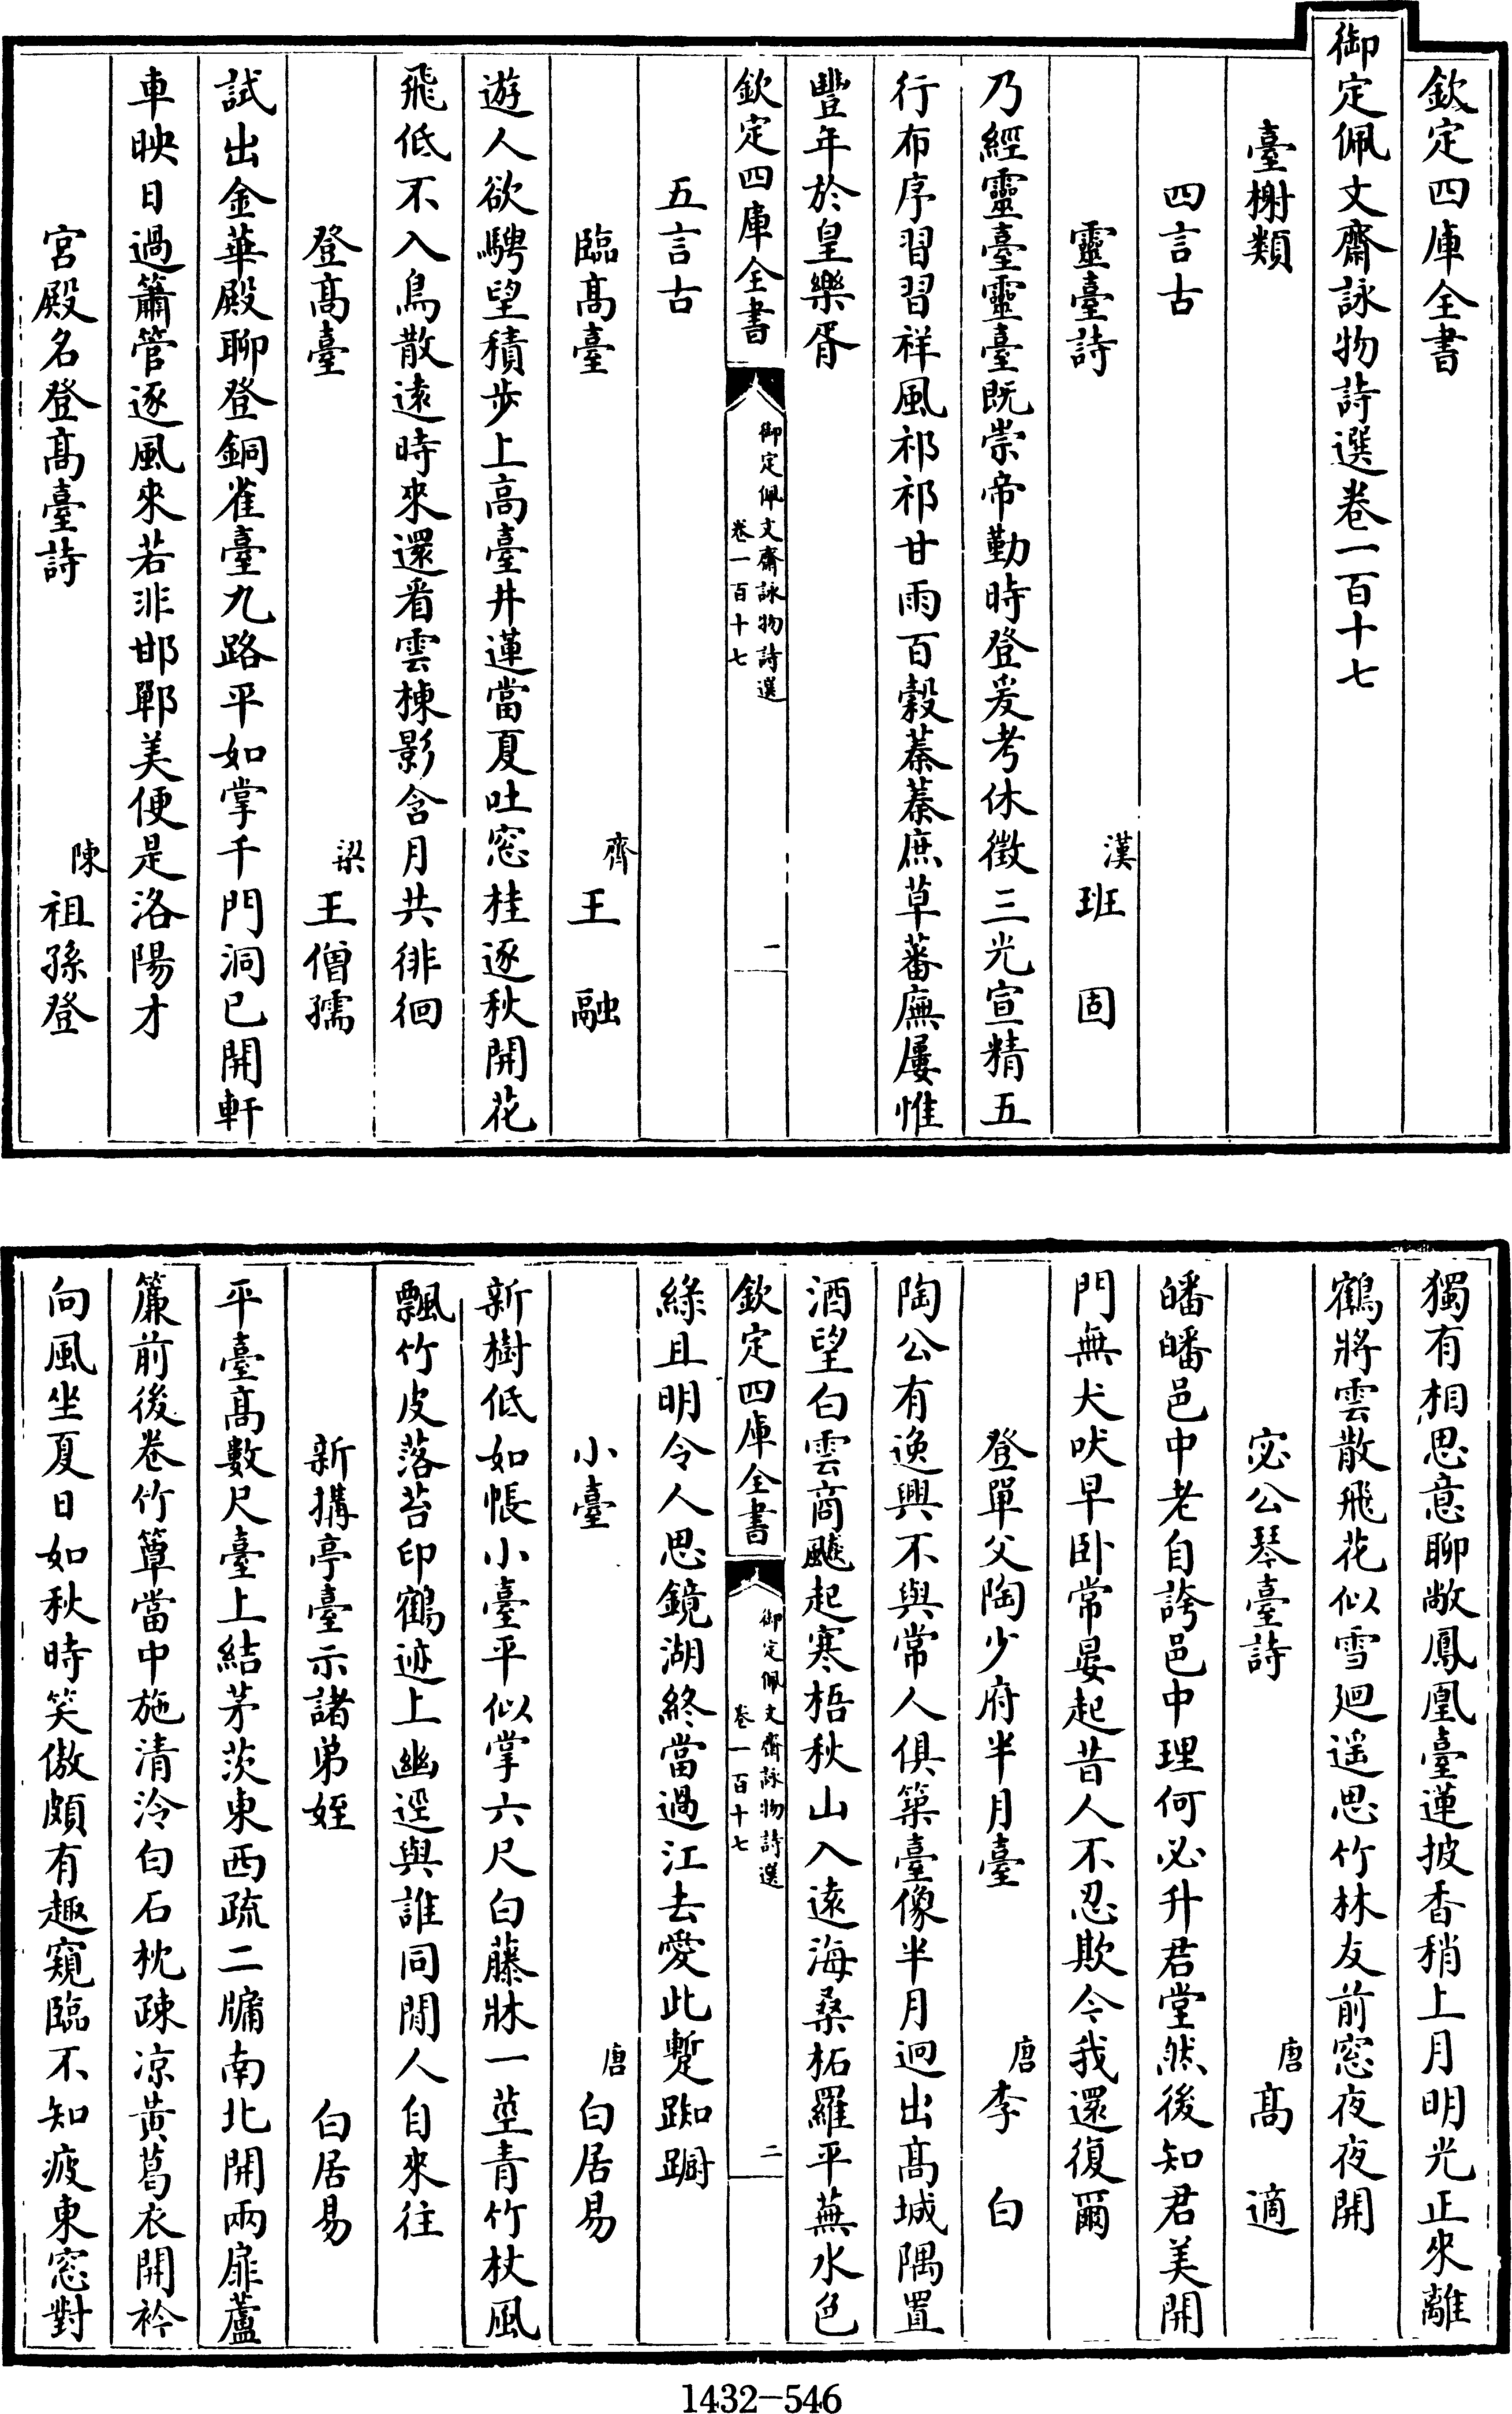 欽定四庫全書
御定佩文齋詠物詩選卷一百十七
臺榭類
四言古
靈臺詩 漢班固
乃經靈臺靈臺既崇帝勤時登爰考休徵三光宣精五
行布序習習祥風祁祁甘雨百穀蓁蓁庶草蕃廡屢惟
豐年於皇樂胥
欽定四庫全書 御定佩文齋詠物詩選 卷一百十七 一
五言古
臨髙臺 齊王融
遊人欲騁望積步上高臺井蓮當夏吐窓桂逐秋開花
飛低不入鳥散逺時來還看雲棟影含月共徘徊
登髙臺 梁王僧孺
試出金華殿聊登銅雀臺九路平如掌千門洞已開軒
車映日過簫管逐風來若非邯鄲美便是洛陽才
宮殿名登髙臺詩 陳祖孫登
獨有相思意聊敞鳳凰臺蓮披香稍上月明光正來離
鶴將雲散飛花似雪廻遥思竹林友前窓夜夜開
宓公琴臺詩 唐髙適
皤皤邑中老自誇邑中理何必升君堂然後知君美開
門無犬吠早卧常晏起昔人不忍欺今我還復爾
登單父陶少府半月臺 唐李白
陶公有逸興不與常人俱築臺像半月迥出髙城隅置
酒望白雲商飇起寒梧秋山入逺海桑柘羅平蕪水色
綠且明令人思鏡湖終當過江去愛此蹔踟蹰
欽定四庫全書 御定佩文齋詠物詩選 卷一百十七 二
小臺 唐白居易
新樹低如帳小臺平似掌六尺白藤牀一莖青竹杖風
飄竹皮落苔印鶴迹上幽逕與誰同閒人自來往
新搆亭臺示諸弟姪 白居易
平臺髙數尺臺上結茅茨東西疏二牖南北開兩扉蘆
簾前後卷竹簟當中施清泠白石枕疎凉黄葛衣開衿
向風坐夏日如秋時笑傲頗有趣窺臨不知疲東窓對
1432-546